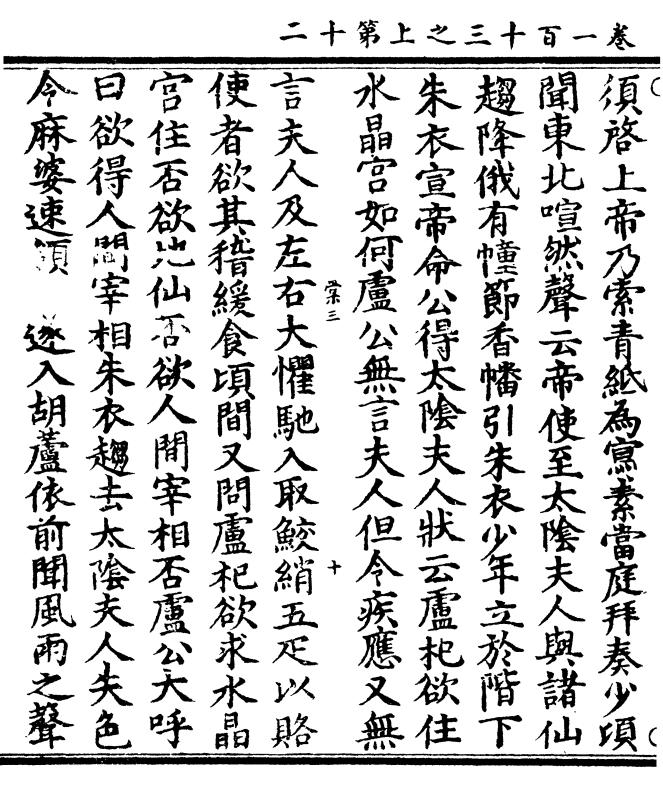 卷一百十三之上第十二
須啓上帝乃索青紙為寫素當庭拜奏少頃
聞東北喧然聲云帝使至太陰夫人與諸仙
趨降俄有幢節香幡引朱衣少年立於階下
朱衣宣帝命公得太陰夫人狀云盧杞欲住
水晶宮如何盧公無言夫人但令疾應又無
棠三 十
言夫人及左右大懼馳入取鮫綃五疋以賂
使者欲其稽緩食頃間又問盧杞欲求水晶
宮住否欲地仙否欲人間宰相否盧公大呼
曰欲得人間宰相朱衣趨去太陰夫人失色
令麻婆速領 遂入胡蘆依前聞風雨之聲